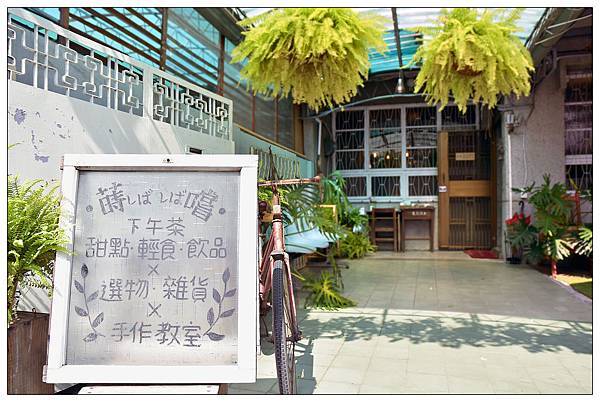 蒔しばしば嚐
下午茶
甜點·輕食·飲品
×
選物·雜貨
×
手作教室